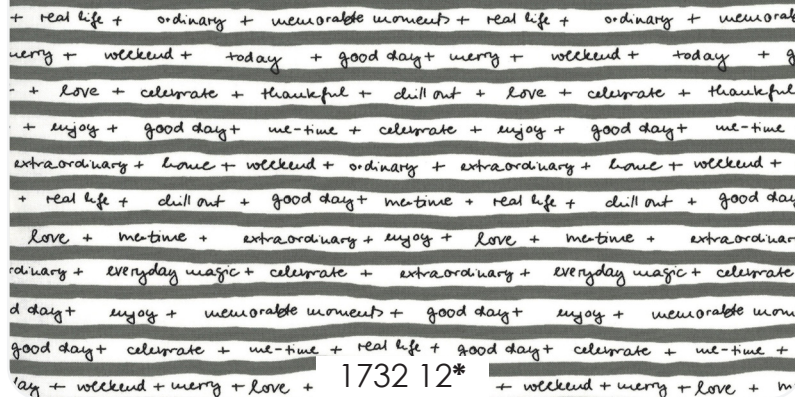 + real life + ordinary + memorable moments + real life + ordinary + memorab
merry + weekend + today + good day + merry + weekend + today + g
+ love + celebrate + thankful + chill out + love + celebrate + thankful
+ enjoy + good day + me-time + celebrate + enjoy + good day + me-time
extraordinary + home + weekend + ordinary + extraordinary + home + weekend +
+ real life + chill out + good day + me-time + real life + chill out + good day
love + me-time + extraordinary + enjoy + love + me-time + extraordinar
rdinary + everyday magic + celebrate + extraordinary + everyday magic + celebrate
d day + enjoy + memorable moments + good day + enjoy + memorable mom
good day + celebrate + me-time + real life + good day + celebrate + me-time +
ay + weekend + merry + love + 1732 12* + weekend + merry + love + m